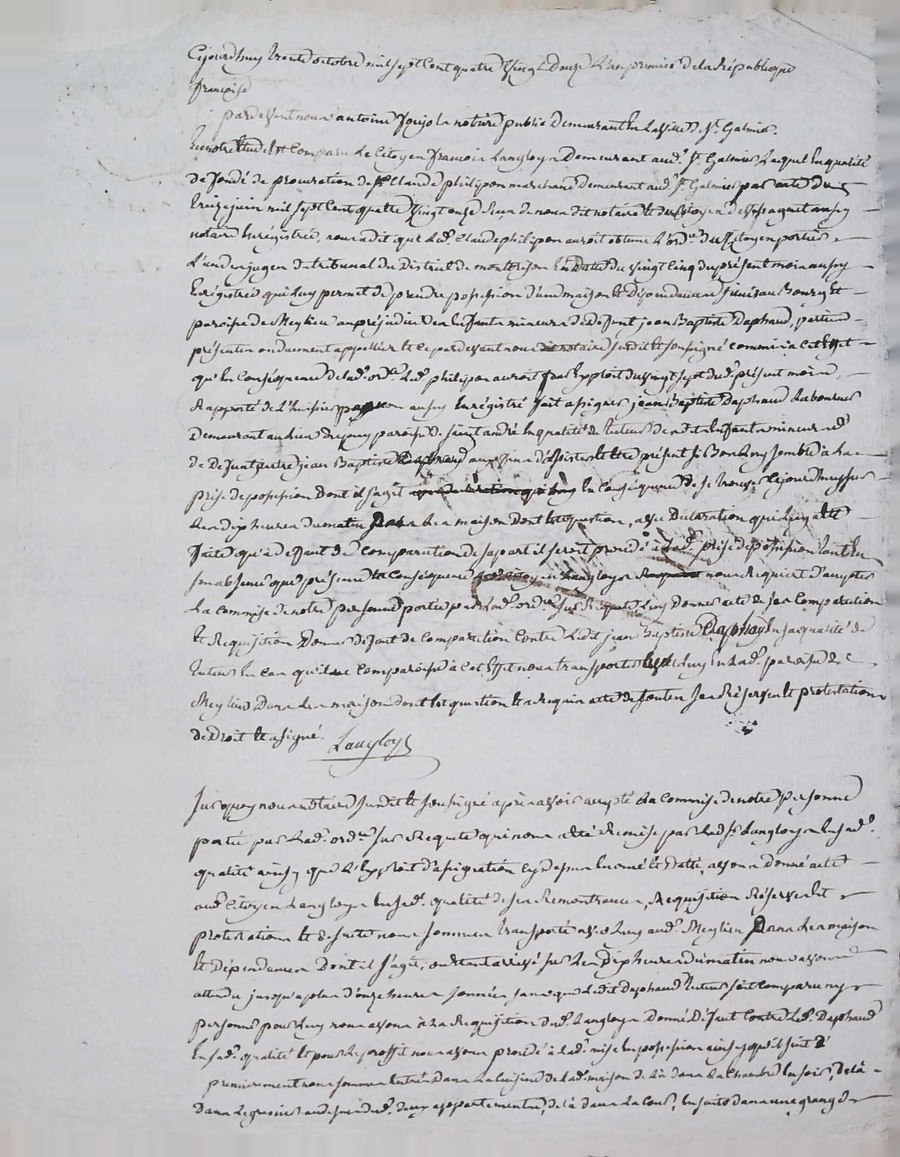 Cejourdhuy trente octobre mil sept cent quatre vingt douze L'an premier de la république
françoise
pardevant nous antoine notaire public demeurant en la ville de St. Galmier
En notre etude est Comparu Le Citoyen francois Langloys Demeurant aud. St. Galmier Lequel En qualité
de fondé de procuration de Sr. Claude philipon marchand Demeurant aud. St. Galmier par acte du
treize juin mil sept cent quatre vingt onze Reçu de nous dit notaire et du Citoyen aussy
notaire Enregistrée, nous a dit que Led. Claude philipon auroit obtenu L'ord.ce du Citoyen portier
L'un des juges du tribunal du District de montbrison En Datte du vingt cinq du présent mois aussy
Enregistrée qui Luy permet de prendre possession d'une maison et Dépendances situées au Bourg et
paroisse de Meylieu au préjudice des Enfants mineurs de Defunt jean Baptiste Daphaud, parties
présentes ou duement appellées et ce pardevant nous notaire susdit et soussigné commis a cet Effet
qu'En Conséquence de lad. ord.ce Led. philipon auroit par Exploit du vingt sept dud. présent mois
Rapporté de L'huissier aussy Enregistré fait assigner jean Baptiste Daphaud Laboureur
Demeurant au Lieu paroisse de saint andré En qualité de tuteur desdits Enfants mineurs
de Defunt autre jean Baptiste Daphaud aux fins d'assister et Etre présent si Bon Luy semble à la
prise de possession dont il s'agit En Conséquence de se trouver Cejourdhuy sur
Les dix heures du matin Dans La maison dont Est question, avec Déclaration qui Luy a Eté
faite qu'a deffaut de Comparution de sa part il seroit procédé à lad. prise de possession tant En
son absence que présence En Conséquence Led. Citoyen Langloys nous Requiert d'accepter
La Commise de notre personne portée par Lad. ord.ce sur Requete Luy donner acte de sa Comparution
et Requisition Donner défaut de Comparution Contre Ledit jean Baptiste Daphaud En sa qualité de
tuteur En cas qu'il ne Comparoisse a Cet Effet nous transporter avec Luy En Lad. paroisse de
Meylieu Dans La maison dont Est question Et a Requis acte de toutes ses Réserves et protestations
de Droit Et a signé. Langloys
Sur quoy nous notaire susdit et soussigné après avoir accepté La Commise de notre personne
portée par Lad. ord.ce sur Requete qui nous a été Remise par Led. Sr. Langloys En sad.
qualité ainsy que L'Exploit d'assignation cy dessus Enoncé et Datté, avons donné acte
aud. Citoyen Langloys En sad. qualité de ses Remontrances, Requisition Réserves et
protestations Et de suite nous sommes transporté avec Luy aud. Meylieu Dans La maison
Et Dépendances Dont il s'agit, ou Etant arrivé sur Les Dix heures du matin nous avons
attendu jusqu'a plus d'onze heures sonnées sans que Ledit Daphaud tuteur soit Comparu ny
personne pour Luy nous avons à La Requisition dud. Langloys Donné Défaut Contre Led. Daphaud
En sad. qualité Et pour Le proffit nous avons procédé à lad. mise En possession ainsy qu'il suit
premierement nous sommes Entrés dans La Cuisine de Lad. maison de Là dans La Chambre de là
dans Le grenier au dessus desd. deux appartements, de là dans La Cour, Ensuite dans une grange